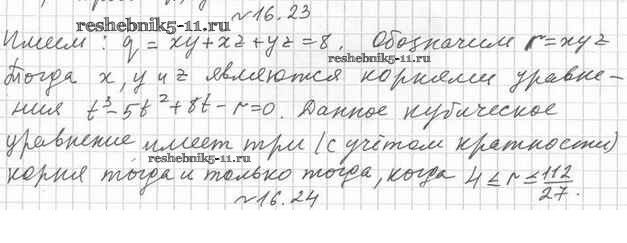 №16.23
reshebnik5-11.ru
Имеем: q = xy+xz+yz=8. Обозначим r=xyz
reshebnik5-11.ru
Тогда x, y и z являются корнями уравне-
ния t³-5t²+8t-r=0. Данное кубическое
уравнение имеет три (с учётом кратности)
reshebnik5-11.ru
корня тогда и только тогда, когда 4 ≤ r ≤ 112/27.
№16.24